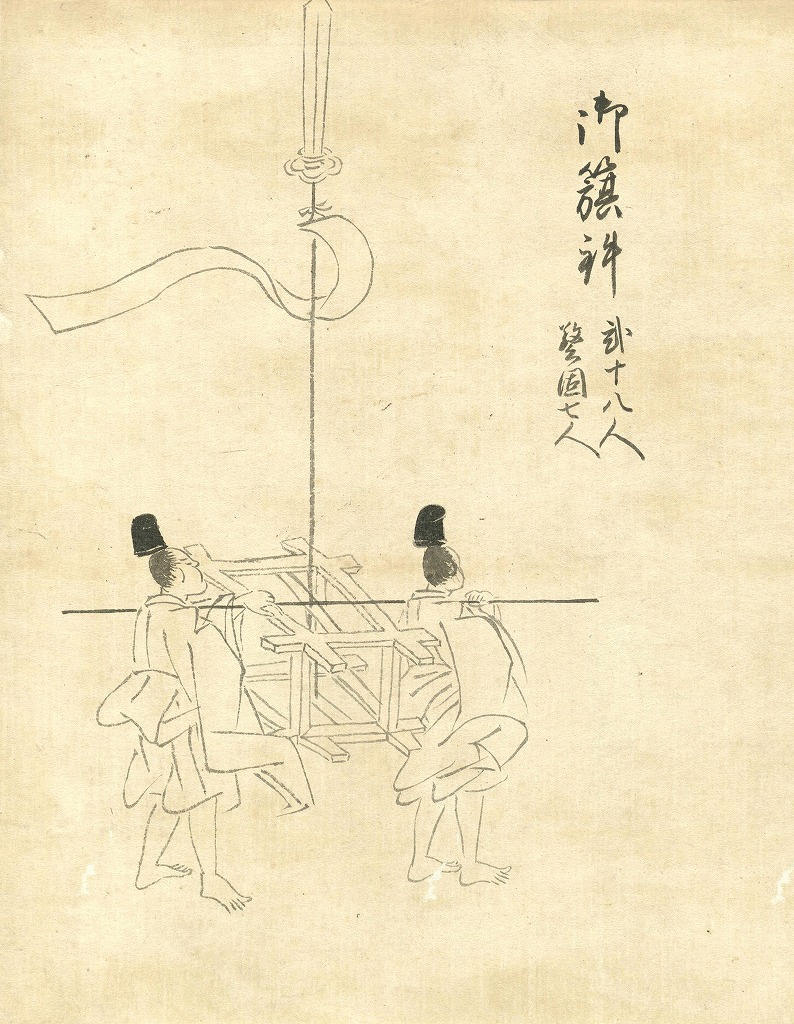 御籏鉾
弐十八人
警固七人